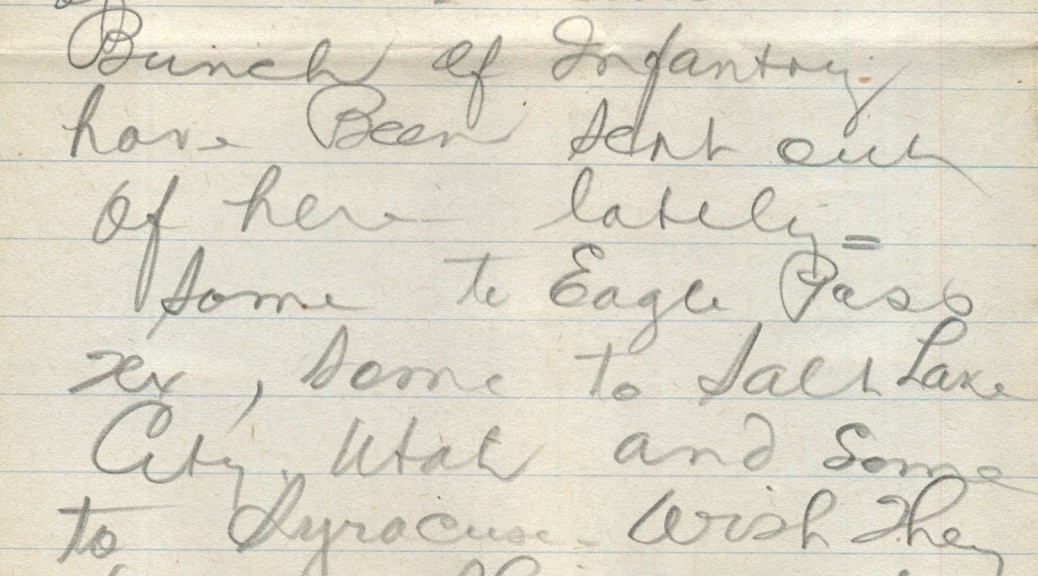 Bunch of Infantry
have Been sent out
of here lately =
Some to Eagle Pass
Tex, Some to Salt Lake
City, Utah and Some
to Syracuse. Wish They